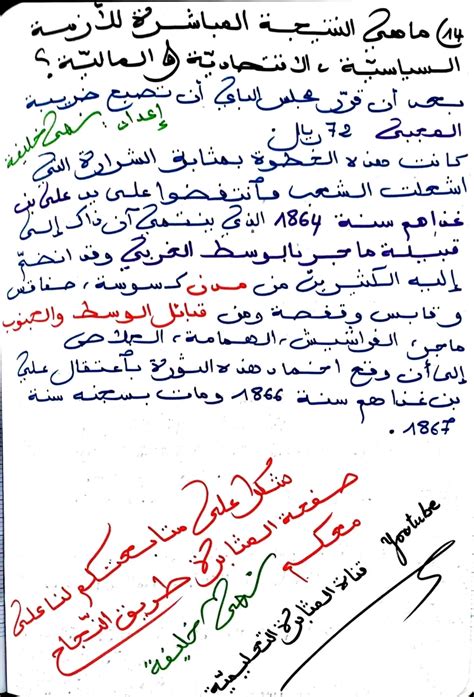 14) ماهي النتيجة المباشرة للأزمة
السياسية، الاقتصادية و المالية؟
بعد أن قرّر مجلس الباي أن تصبح ضريبة
المجبى 72 ريال.
إعداد: نهى خليفة
كانت هذه الخطوة بمثابة الشرارة التي
اشعلت الشعب فأنتفضوا على يد علي بن
غذاهم سنة 1864 الذي ينتمي آن ذاك إلى
قبيلة ماجر بالوسط الغربي وقد انضمّ
إليه الكثيرين من مدن كـ سوسة، صفاقس
و قابس وقفصة ومن قبائل الوسط والجنوب
ماجر، الفراشيش، الهمامة،
إلى أن وقع اخماد هذه الثورة بأعتقال علي
بن غذاهم سنة 1866 ومات بسجنه سنة
1867.
شكرا على متابعتكم لنا على
صفحة المثابرة طريق النّجاح
معكم نهى خليفة
قناة المثابرة التعليمية
Youtube